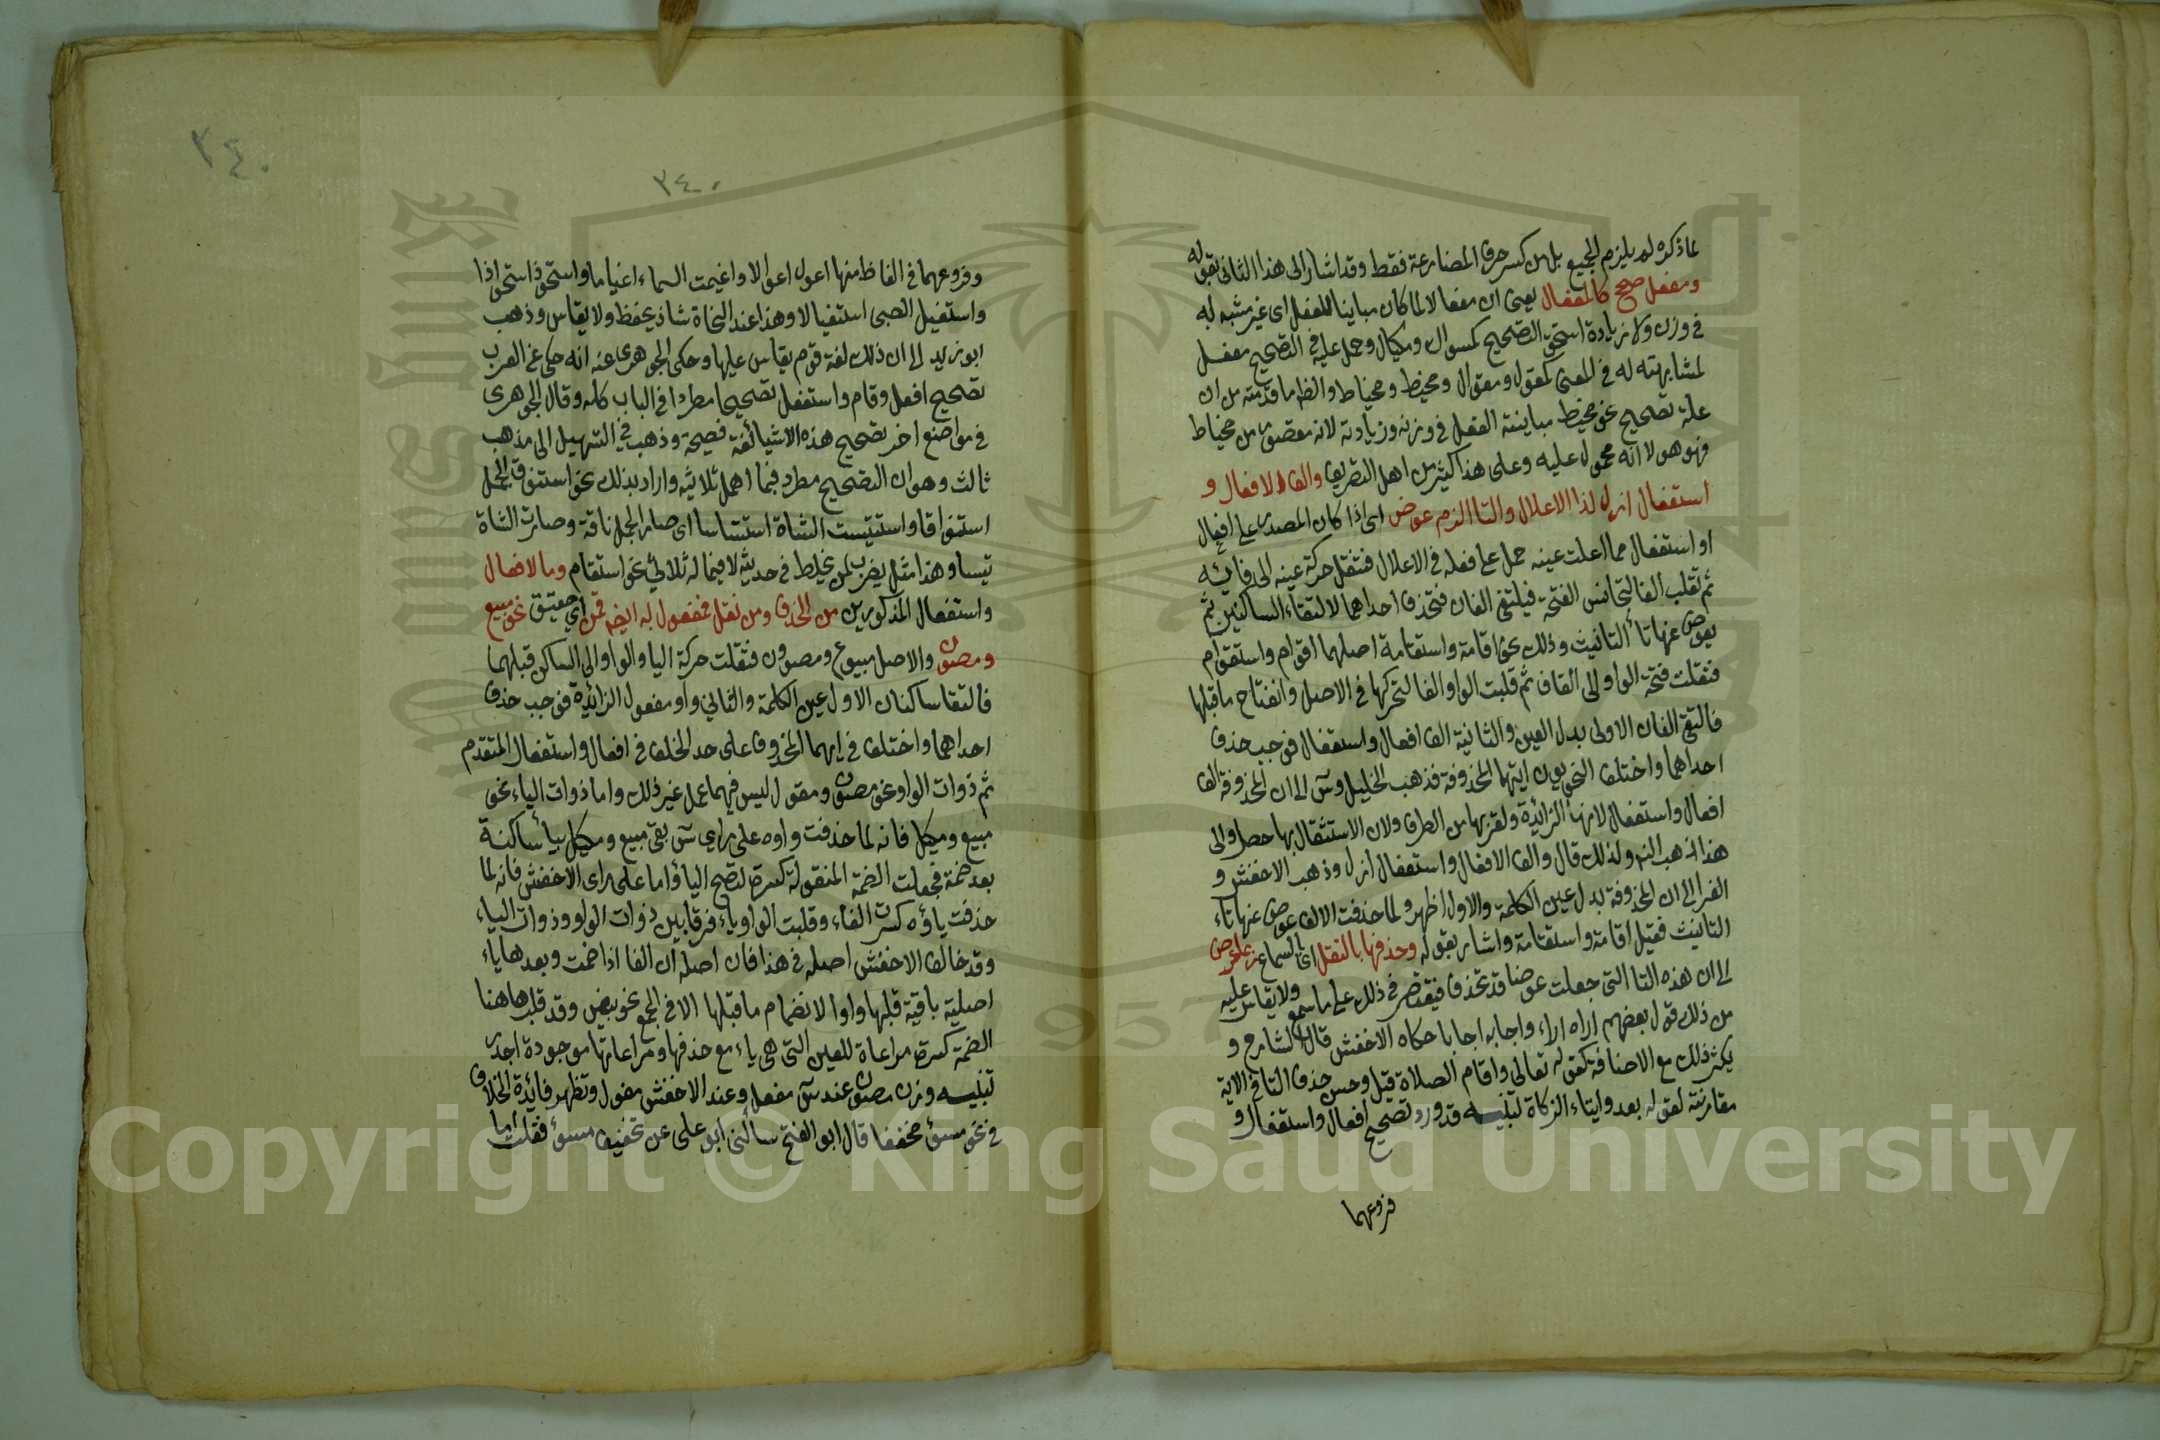 لما ذكره لم يلزم الجميع بل من كسر حرف المضارعة فقط وقد اشار الى هذا الثانى بقوله
ومفعل صحح كالمفعال يعنى ان مفعالا لما كان مباينا للفعل اى غير مشبه له
فى وزن ولا زيادة استحق التصحيح كمسوال ومكيال وحمل عليه فى التصحيح مفعل
لمشابهته له فى المعنى كمقول ومقوال ومخيط ومخياط والظ ما قدمته من ان
علة تصحيح نحو مخيط مباينته الفعل فى وزنه وزيادته لانه مقصور من مخياط
فهو هو لا انه محمول عليه وعلى هذا كثير من اهل التصريف والف الافعال و
استفعال ازل لذا الاعلال والتا الزم عوض اى اذا كان المصدر على افعال
او استفعال مما اعلت عينه حمل على فعله فى الاعلال فتنقل حركة عينه الى فائه
ثم تقلب الفا لتجانس الفتحة فيلتقى الفان فتحذف احداهما لالتقاء الساكنين ثم
يعوض عنها تأ التانيث وذلك نحو اقامة واستقامة اصلهما اقوام واستقوام
فنقلت فتحة الواو الى القاف ثم قلبت الواو الفا لتحركها فى الاصل وانفتاح ما قبلها
فالتقى الفان الاولى بدل العين والثانية الف افعال واستفعال فوجب حذف
احداهما واختلف النحويون ايتهما المحذوفة فذهب الخليل وس الى ان المحذوفة الف
افعال واستفعال لانها الزائدة ولقربها من الطرف ولان الاستثقال بها حصل والى
هذا ذهب النم ولذلك قال والف الافعال واستفعال ازل وذهب الاخفش و
الفرا الى ان المحذوفة بدل عين الكلمة والاول اظهر ولما حذفت الالف عوض عنها تاء
التانيث فقيل اقامة واستقامة واشار بقوله وحذفها بالنقل اى بالسماع ربما عرض
الى ان هذه التا التى جعلت عوضا قد تحذف فيقتصر فى ذلك على ما سمع ولا يقاس عليه
من ذلك قول بعضهم اراه اراء واجابه اجابا حكاه الاخفش قال الشارح و
يكثر ذلك مع الاضافة كقوله تعالى واقام الصلاة قيل وحسن حذف التا فى الاية
مقارنته لقوله بعد وايتاء الزكاة تنبيه قد ورد تصحيح افعال واستفعال و
فروعهما
٣٤٠
٣٤٠
وفروعهما فى الفاظ منها اعول اعوالا واغيمت السماء اغياما واستحوذ استحواذا
واستغيل الصبى استغيالا وهذا عند النحاة شاذ يحفظ ولا يقاس وذهب
ابو زيد الى ان ذلك لغة قوم يقاس عليها وحكى الجوهرى عنه انه حكى عن العرب
تصحيح افعل وقام واستفعل تصحيحا مطردا فى الباب كله وقال الجوهرى
فى مواضع اخر تصحيح هذه الاشيا لغة فصيحة وذهب فى التسهيل الى مذهب
ثالث وهو ان التصحيح مطرد فيما اهمل ثلاثيه واراد بذلك نحو استنوق الجمل
استنواقا واستتيست الشاة استتياسا اى صار الجمل ناقة وصارت الشاة
تيسا وهذا مثل يضرب لمن يخلط فى حديثه لا فيما له ثلاثى نحو استقام وما لافعال
واستفعال المذكورين من الحذف ومن نقل فمفعول له ايضا قمن اى حقيق نحو مبيع
ومصون والاصل مبيوع ومصوون فنقلت حركة اليا والواو الى الساكن قبلهما
فالتقا ساكنان الاول عين الكلمة والثانى واو مفعول الزائدة فوجب حذف
احداهما واختلف فى ايهما المحذوف على حد الخلف فى افعال واستفعال المتقدم
ثم ذوات الواو نحو مصون ومقول ليس فيهما عمل غير ذلك واما ذوات الياء نحو
مبيع ومكيل فانه لما حذفت واوه على راى س بقى مبيع ومكيل بيأ ساكنة
بعد ضمة فجعلت الضمة المنقولة كسرة لتصح اليأ واما على راى الاخفش فانه لما
حذفت ياؤه كسرت الفاء وقلبت الواو ياء فرقا بين ذوات الواو وذوات الياء
وقد خالف الاخفش اصله فى هذا فان اصله ان الفا اذا ضمت وبعدها ياء
اصلية باقية قبلها واوا لانضمام ما قبلها الا فى الجمع نحو بيض وقد قلب هاهنا
الضمة كسرة مراعاة للعين التى هى ياء مع حذفها ومراعاتها موجودة اجدر
تنبيه وزن مصون عند س مفعل وعند الاخفش مفول وتظهر فائدة الخلاف
فى نحو مسو مخففا قال ابو الفتح سألنى ابو على عن تخفيف مسوء فقلت اما